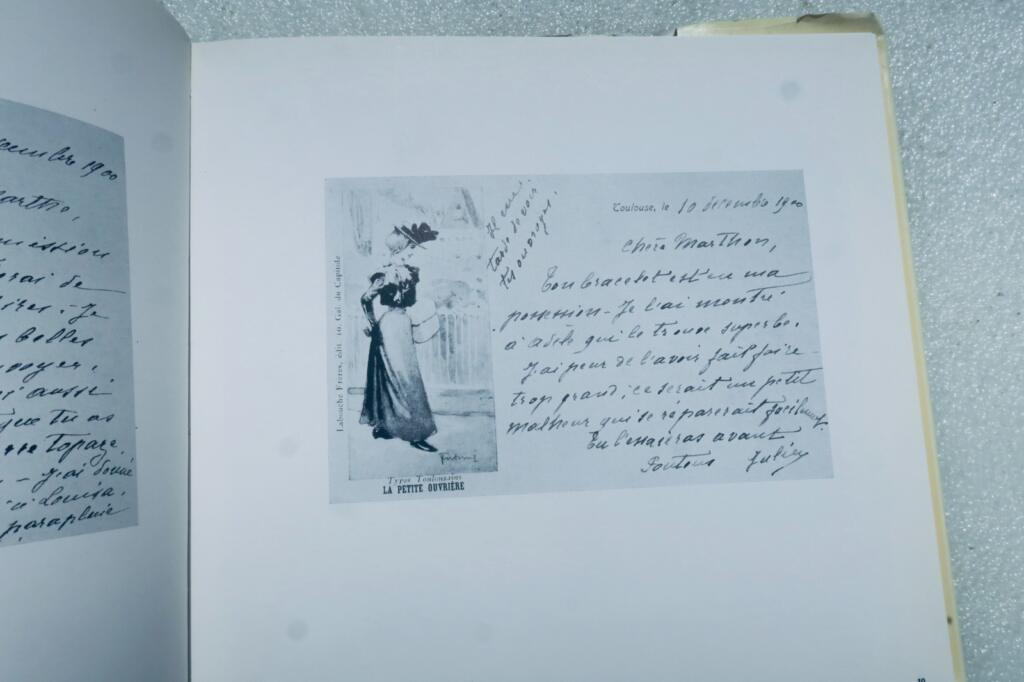 cembre 1900
artho,
mission
rai de
ires. - Je
belles
oyer,
aussi
que tu as
topaze.
- J'ai donné
à Louisa.
parapluie
Labouche Frères, édit. 10, Gal. du Capitole
Il me
tarde de voir
tes ouvrages.
Toulouse, le 10 décembre 1900
Chère Marthon,
Ton bracelet est en ma
possession - Je l'ai montré
à Adèle qui le trouve superbe.
J'ai peur de l'avoir fait faire
trop grand; ce serait un petit
malheur qui se réparerait facilement.
Tu l'essaieras avant
Julien
Types Toulousains
LA PETITE OUVRIÈRE